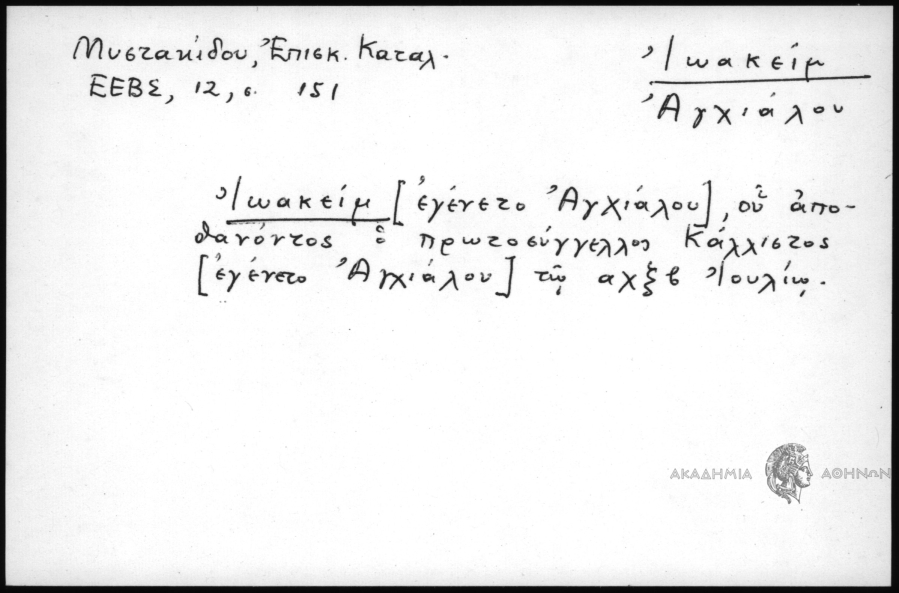 Μυστακίδου, Ἐπισκ. Καταλ.
ΕΕΒΣ, 12, σ. 151
Ἰωακείμ
Ἀγχιάλου
Ἰωακείμ [ἐγένετο Ἀγχιάλου], οὗ ἀπο-
θανόντος ὁ πρωτοσύγγελλος Κάλλιστος
[ἐγένετο Ἀγχιάλου] τῷ αχξβ Ἰουλίῳ.
ΑΚΑΔΗΜΙΑ ΑΘΗΝΩΝ